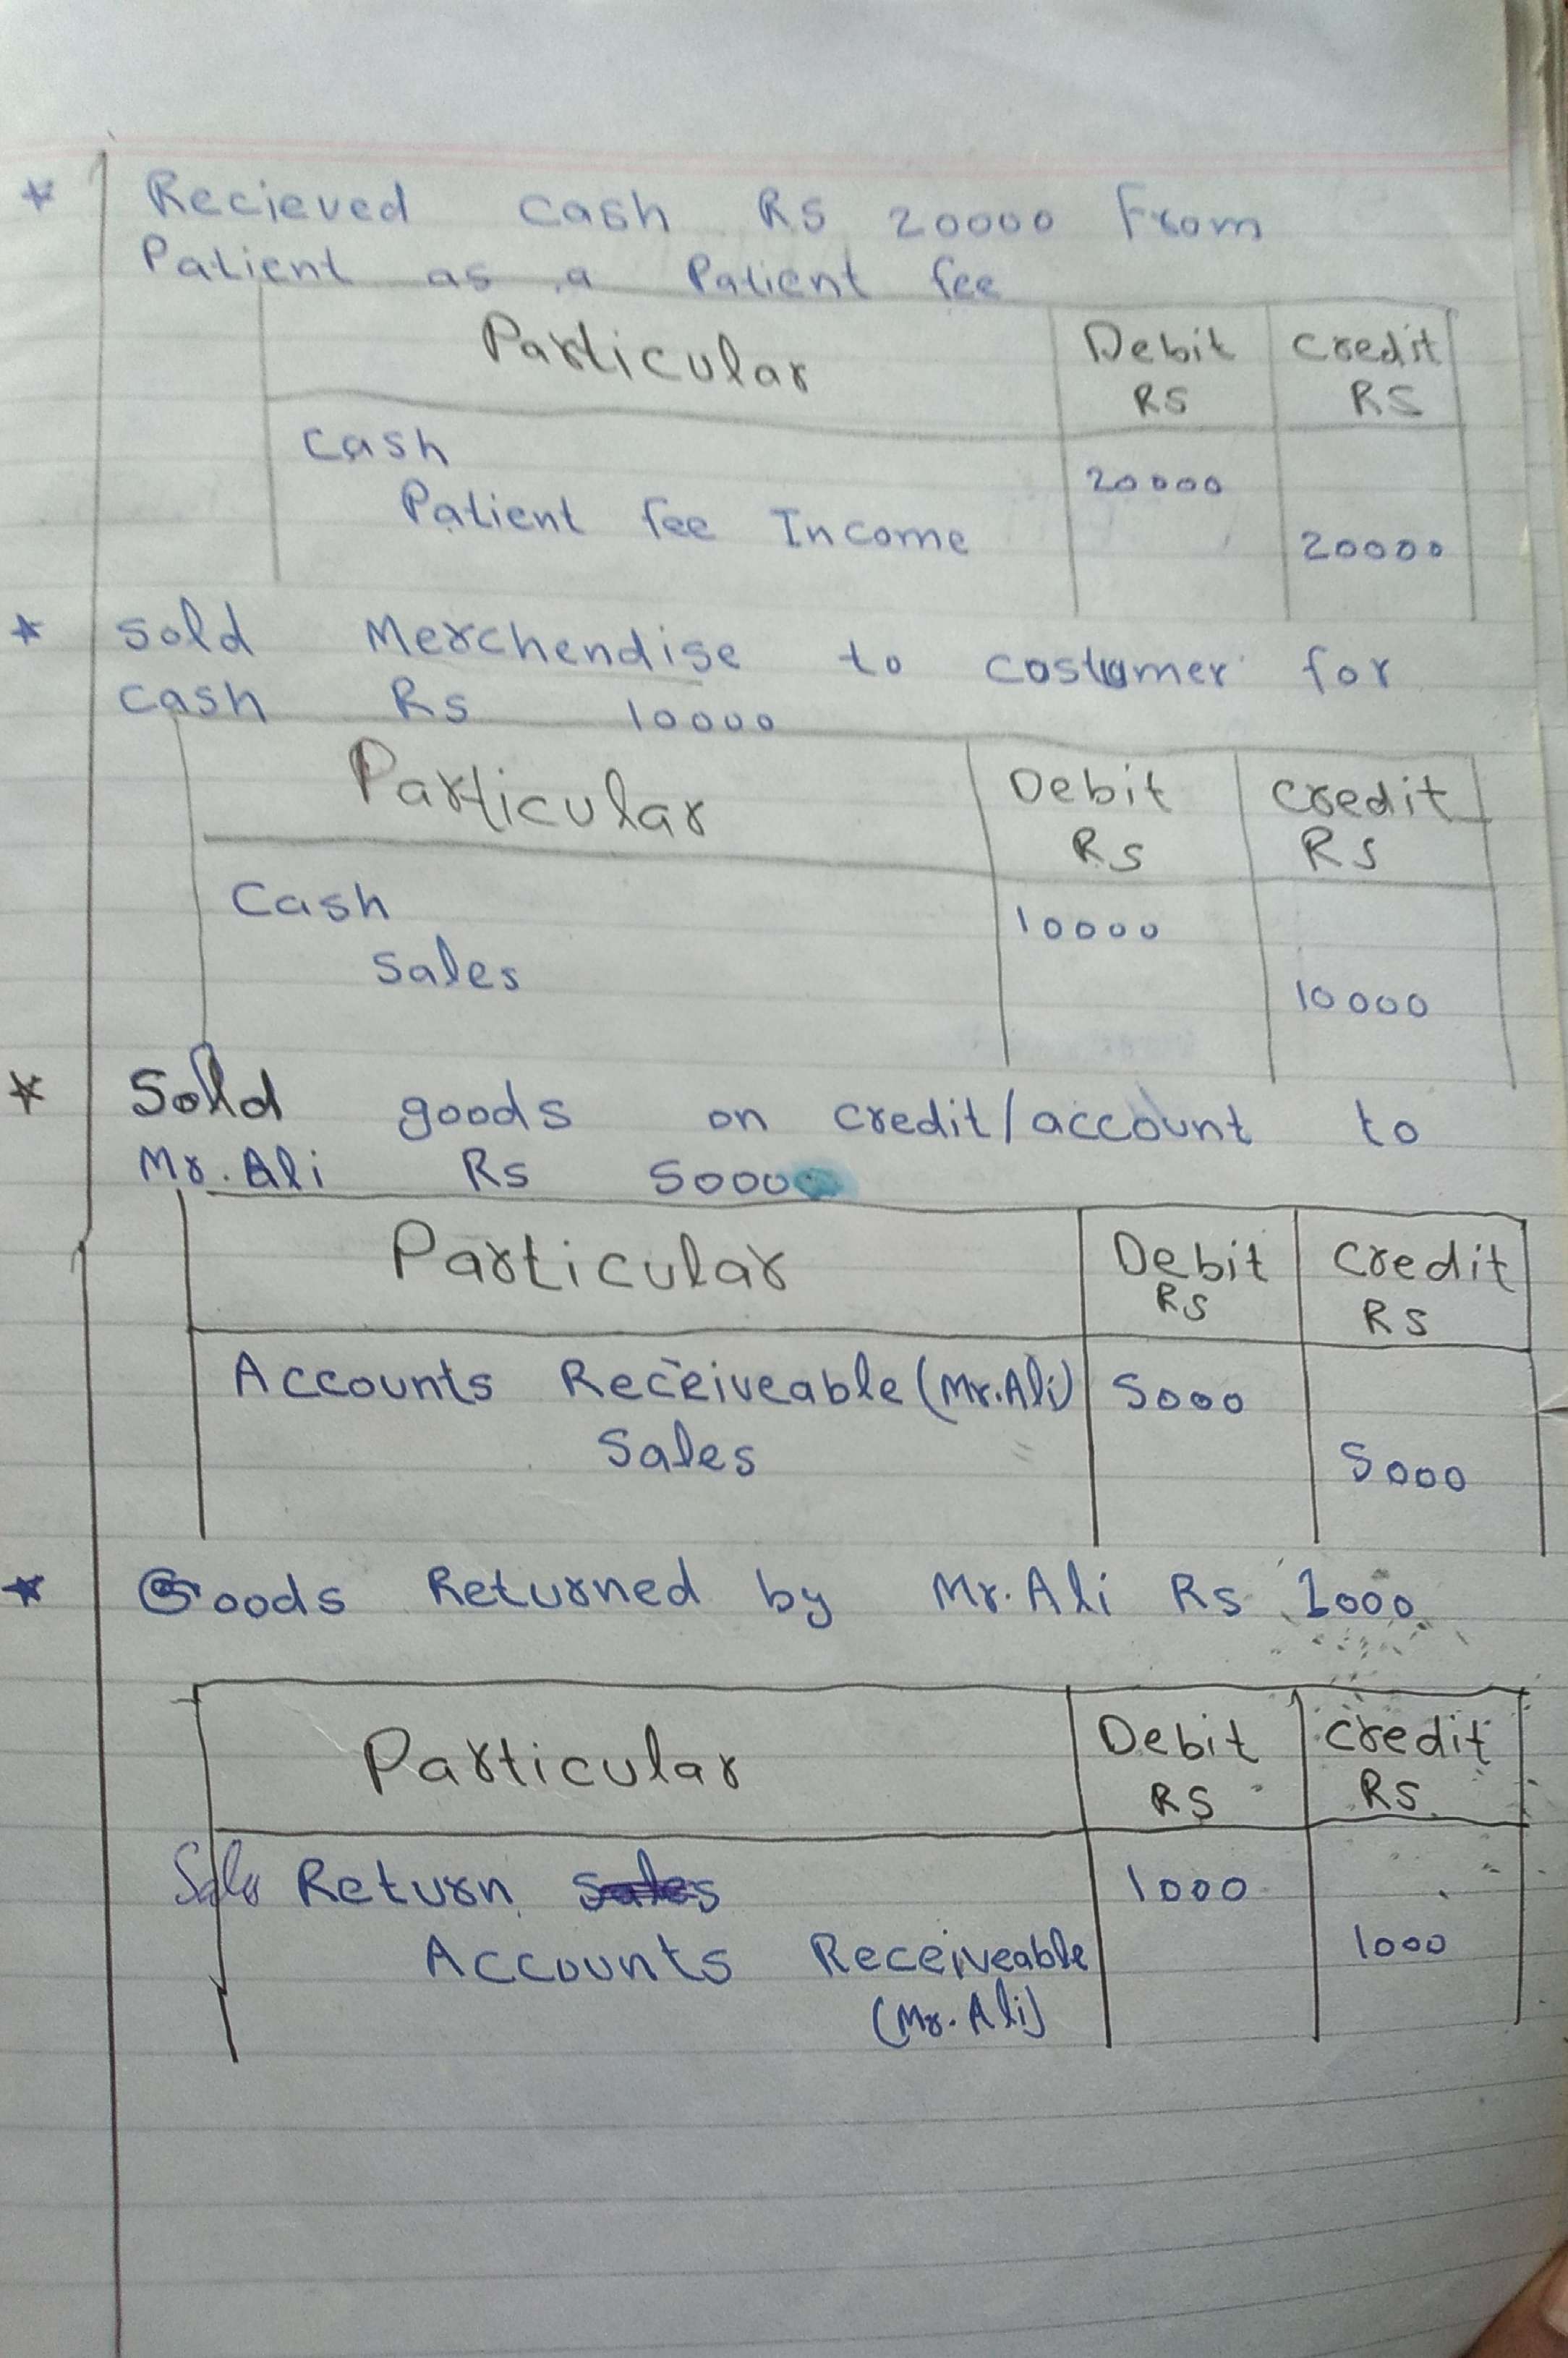 * Recieved cash Rs 20000 From
Patient as a Patient fee
Particular Debit Credit
RS RS
Cash 20000
Patient fee Income 20000
* Sold Merchendise to costumer for
Cash Rs 10000
Particular Debit Credit
Rs Rs
Cash 10000
Sales 10000
* Sold goods on credit/account to
Mr. Ali Rs 5000
Particular Debit Credit
Rs Rs
Accounts Receiveable (Mr. Ali) 5000
Sales 5000
* Goods Returned by Mr. Ali Rs 1000
Particular Debit Credit
RS RS
Return sales 1000
Accounts Receiveable 1000
(Mr. Ali)